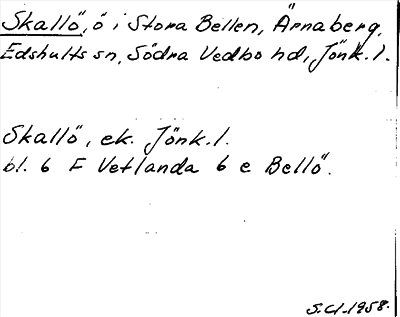 Skallö, ö i Stora Bellen, Ärnaberg,
Edshults sn, Södra Vedbo hd, Jönk. l.
Skallö, ek. Jönk. l.
bl. 6 F Vetlanda 6 e Bellö.
S.Cl. 1958.